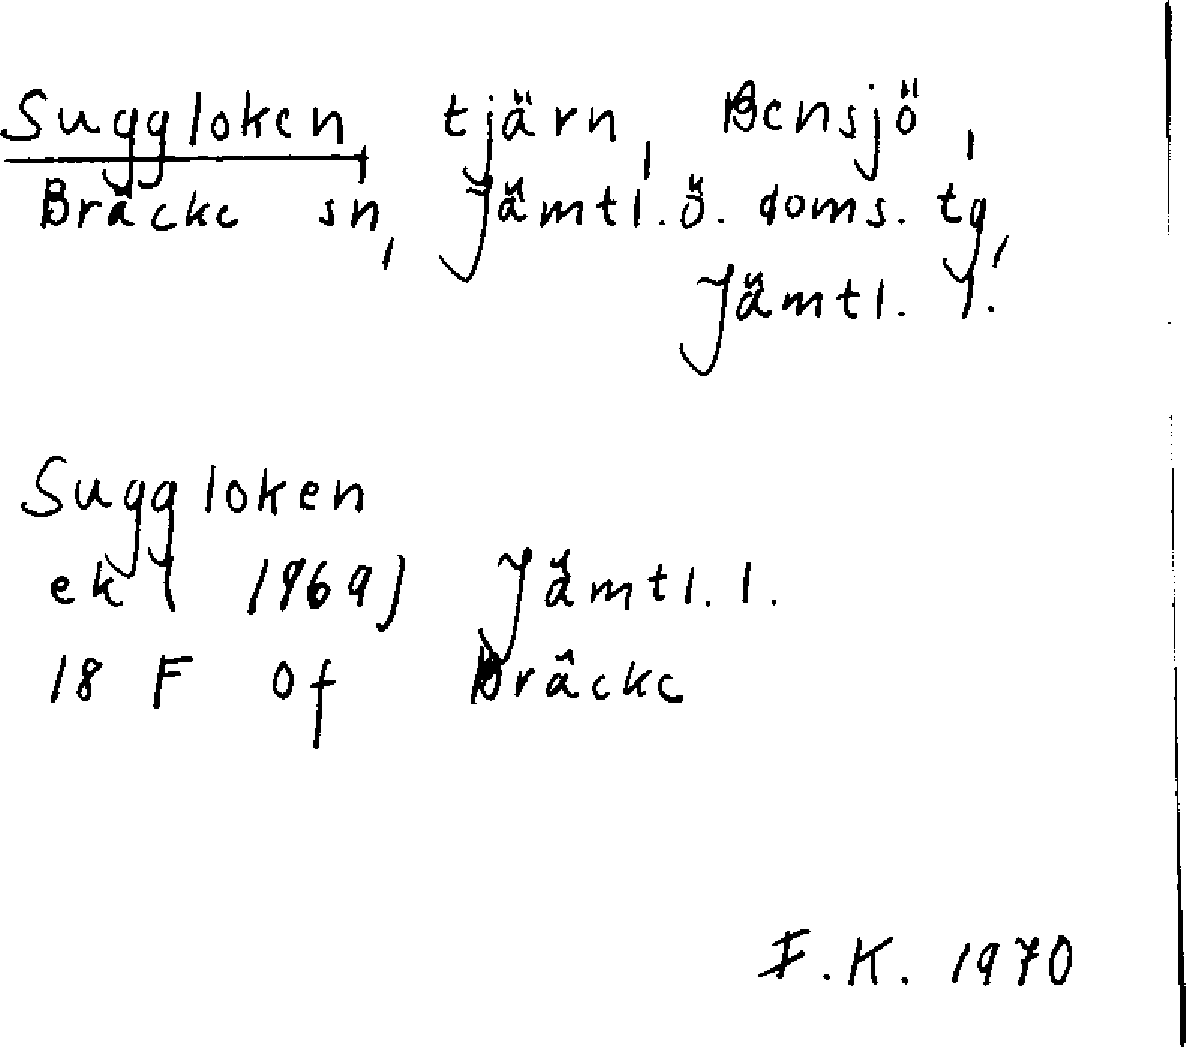 Suggloken, tjärn, Bensjö,
Bräcke sn, Jämtl. ö. doms. tg,
Jämtl. l.
Suggloken
ek (1969) Jämtl. l.
18 F 0f Bräcke
F.K. 1970